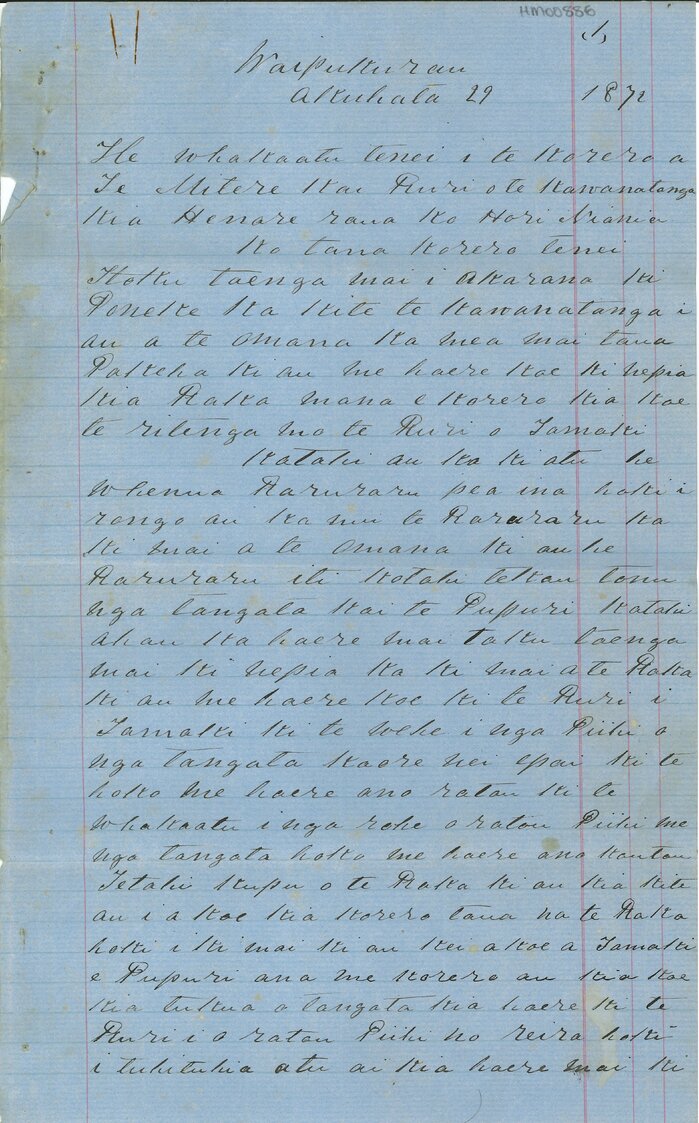 HM00886
1,
Waipukurau
Akuhata 29 1872
He whakaatu tenei i te korero a
Te Mitere Kai Ruri o te Kawanatanga
kia Henare raua ko Hori Niania
ko tana korero tenei
Itoku taenga mai i akarana ki
Poneke ka kite te kawanatanga i
au a te omana ka mea mai taua
Pakeha ki au me haere koe ki nepia
kia Raka mana e korero kia koe
te ritenga mo te Ruri o Tamaki
Katahi au ka ki atu he
whenua Raruraru pea ina hoki i
rongo au ka nui te Raruraru ka
ki mai a te omana ki au he
Raruraru iti kotahi tekau tonu
nga tangata kai te Pupuri katahi
ahau ka haere mai taku taenga
mai ki nepia ka ki mai a te Raka
ki au me haere koe ki te Ruri i
Tamaki ki te wehe i nga Piihi o
nga tangata kaore nei epai ki te
hoko me haere ano ratou ki te
whakaatu i nga rohe o ratou Piihi me
nga tangata hoko me haere ano koutou
Tetahi kupu o te Raka ki au kia kite
au i a koe kia korero taua na te Raka
hoki i ki mai ki au kei a koe a Tamaki
e Pupuri ana me korero au kia koe
kia tukua o tangata kia haere ki te
Ruri i o ratou Piihi no reira hoki
i tuhituhia atu ai kia haere mai ki